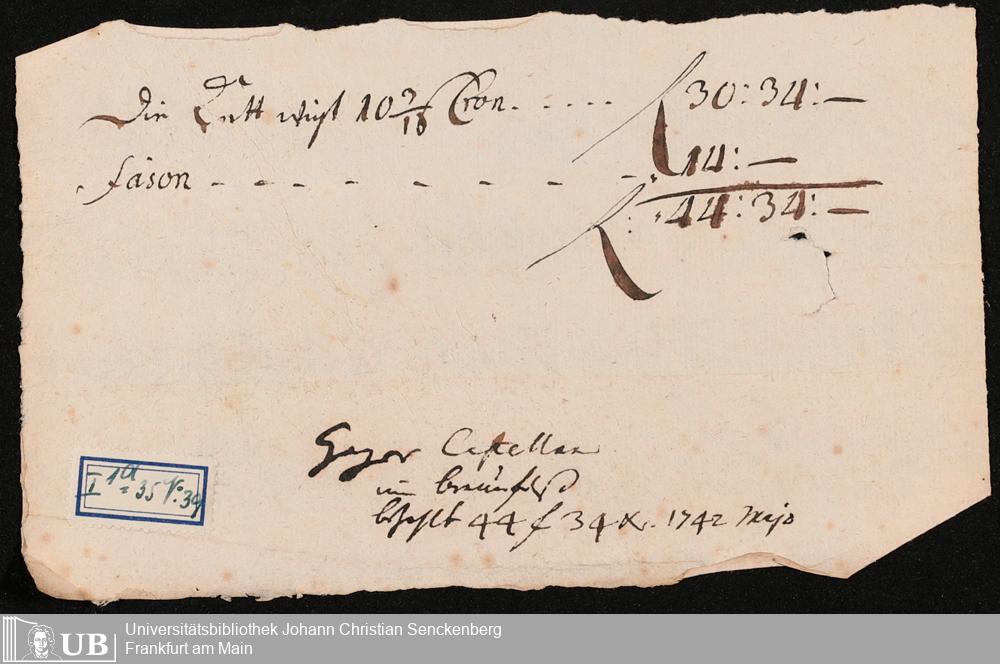 Die Kett wigt 10 9/16 Cron. . . . . . f 30: 34: —
fäson - - - - - - - - - - 14: —
f: 44: 34: —
Geyer Castellan
im braunfelß
bezahlt 44 f 34 x. 1742 Majo
I 1a = 35 No: 39
UB
Universitätsbibliothek Johann Christian Senckenberg
Frankfurt am Main